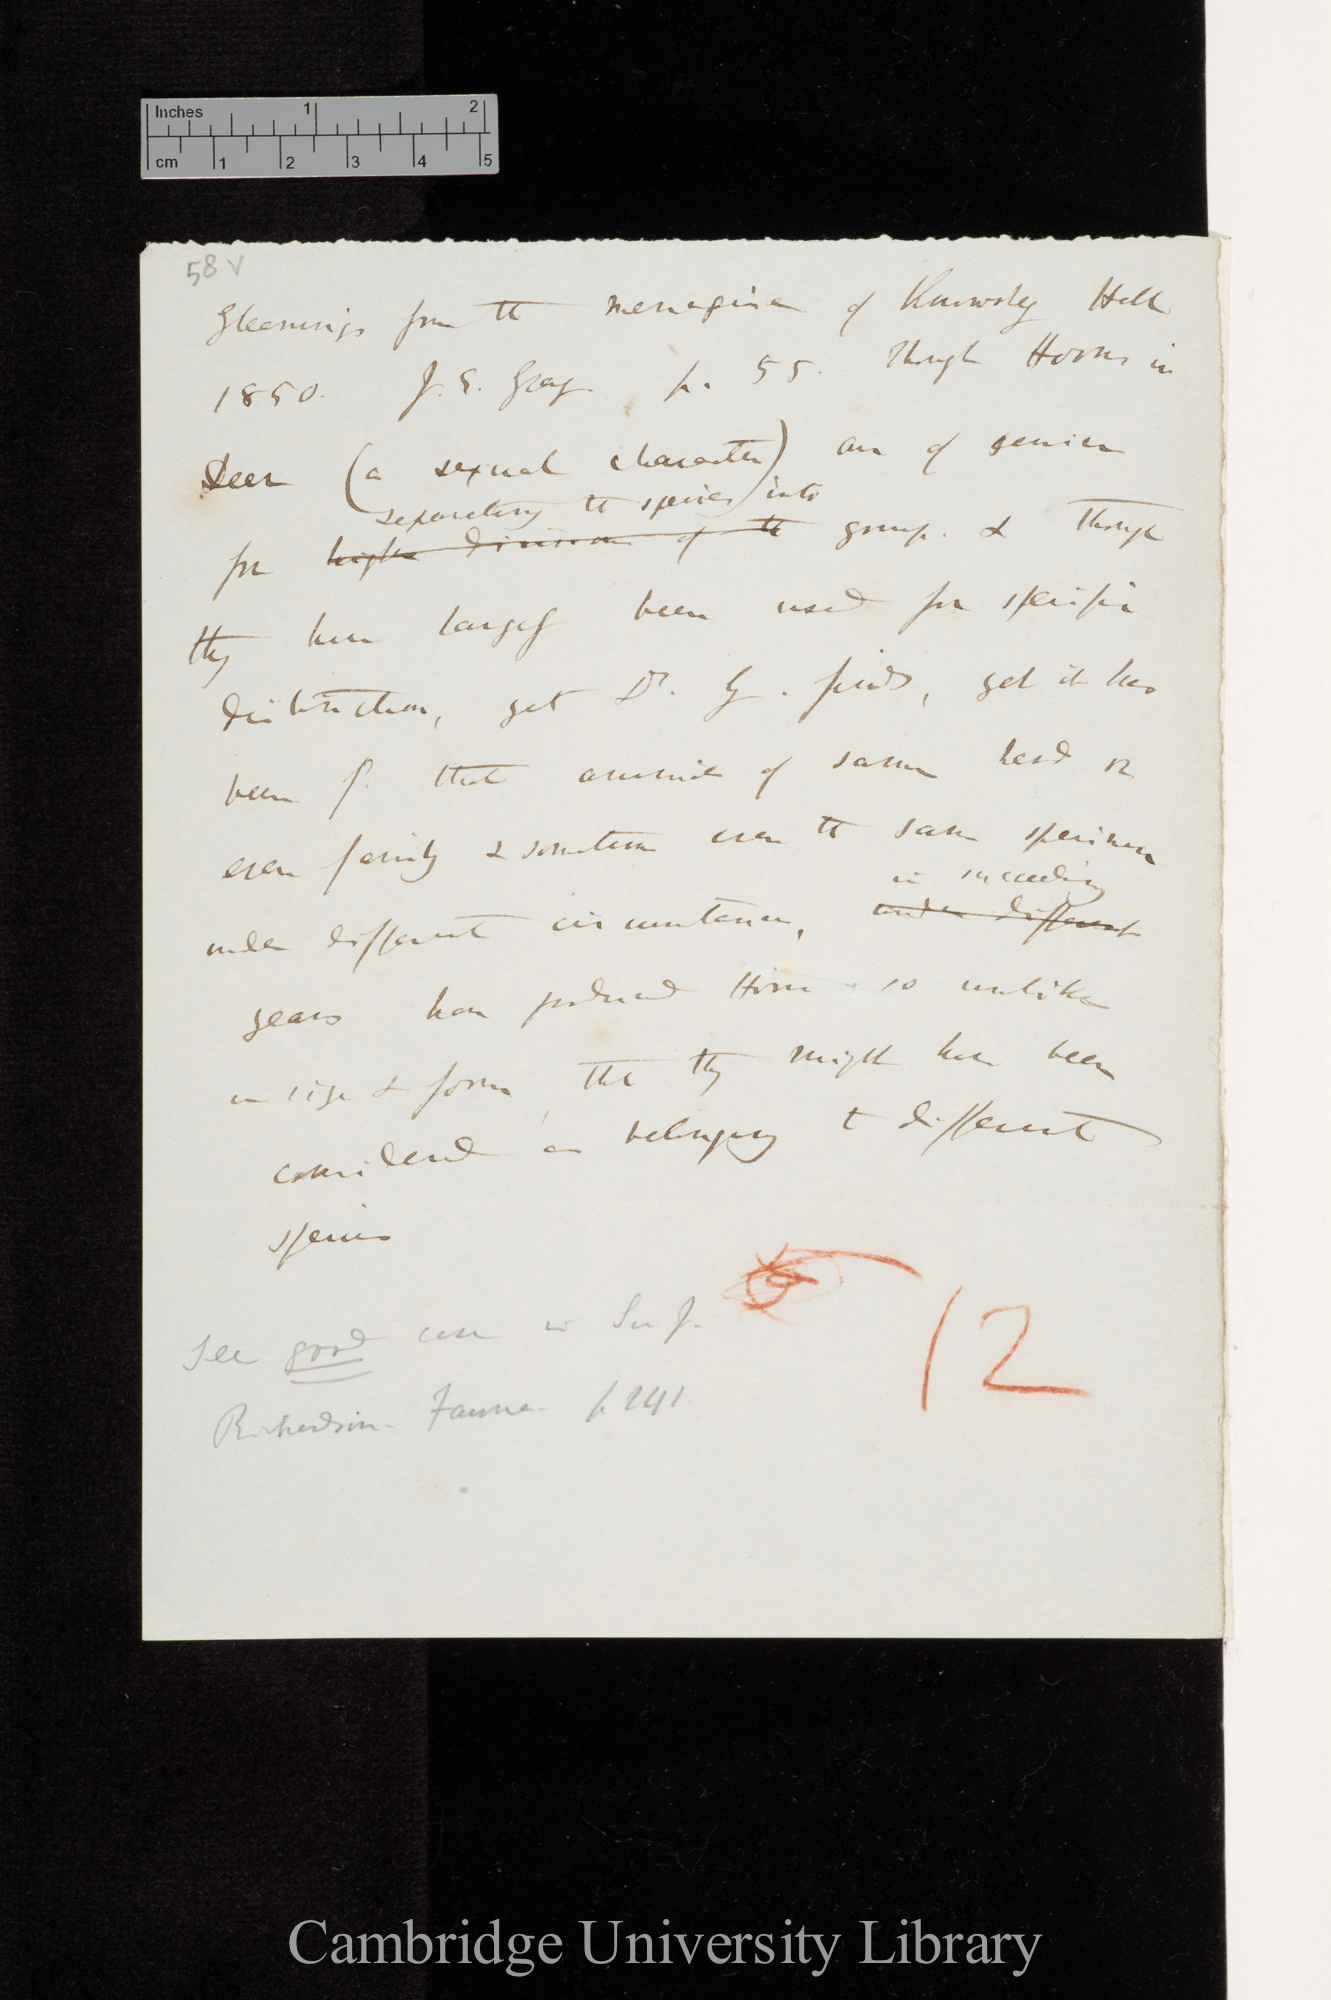 Inches 1 2
cm 1 2 3 4 5
58 v
Gleanings from the menagerie of Knowsley Hall
1850. J. E. Gray p. 55. Though Horns in
Deer (a sexual character) are of service
separating the species into
for higher divisions of the group. & though
they have largely been used for specific
distinction, yet Dr. G. finds, yet it has
been f. that animals of same herd or
even family & sometimes even the same specimen
in succeeding
under different circumstances, under different
years have produced Horns so unlike
in size & form, that they might have been
considered as belonging to different
species
See good case in Sir J.
Richardson. Fauna. p 241
12
Cambridge University Library